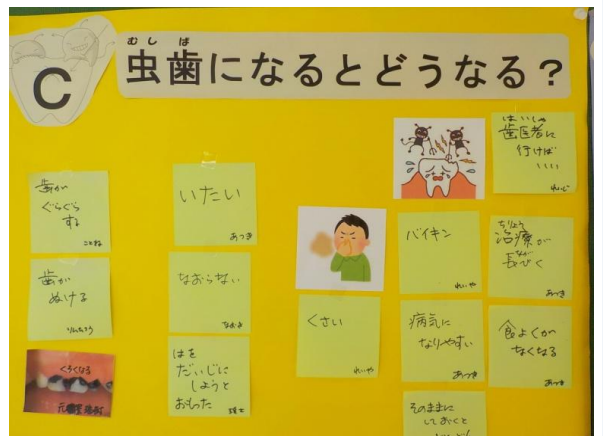 C
むしば
虫歯になるとどうなる？
歯が
ぐらぐら
する
ことね
歯が
ぬける
りんたろう
くろくなる
いたい
あつき
なおらない
なおよ
はを
だいじに
しようと
おもった
くさい
れいや
バイキン
れいや
病気に
なりやすい
あつき
そのままに
しておくと
はいしゃ
歯医者に
行けば
いい
れいじ
ちりょう
治療が
なが
長びく
あつき
食よくが
なくなる
あつき